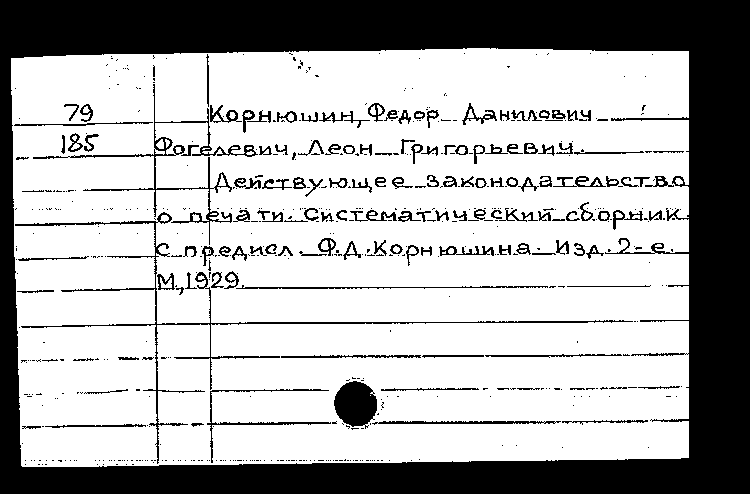 79 Корнюшин, Федор Данилович
185 Фогелевич, Леон Григорьевич.
Действующее законодательство
о печати. Систематический сборник
с предисл. Ф.Д. Корнюшина. Изд. 2-е.
М., 1929.